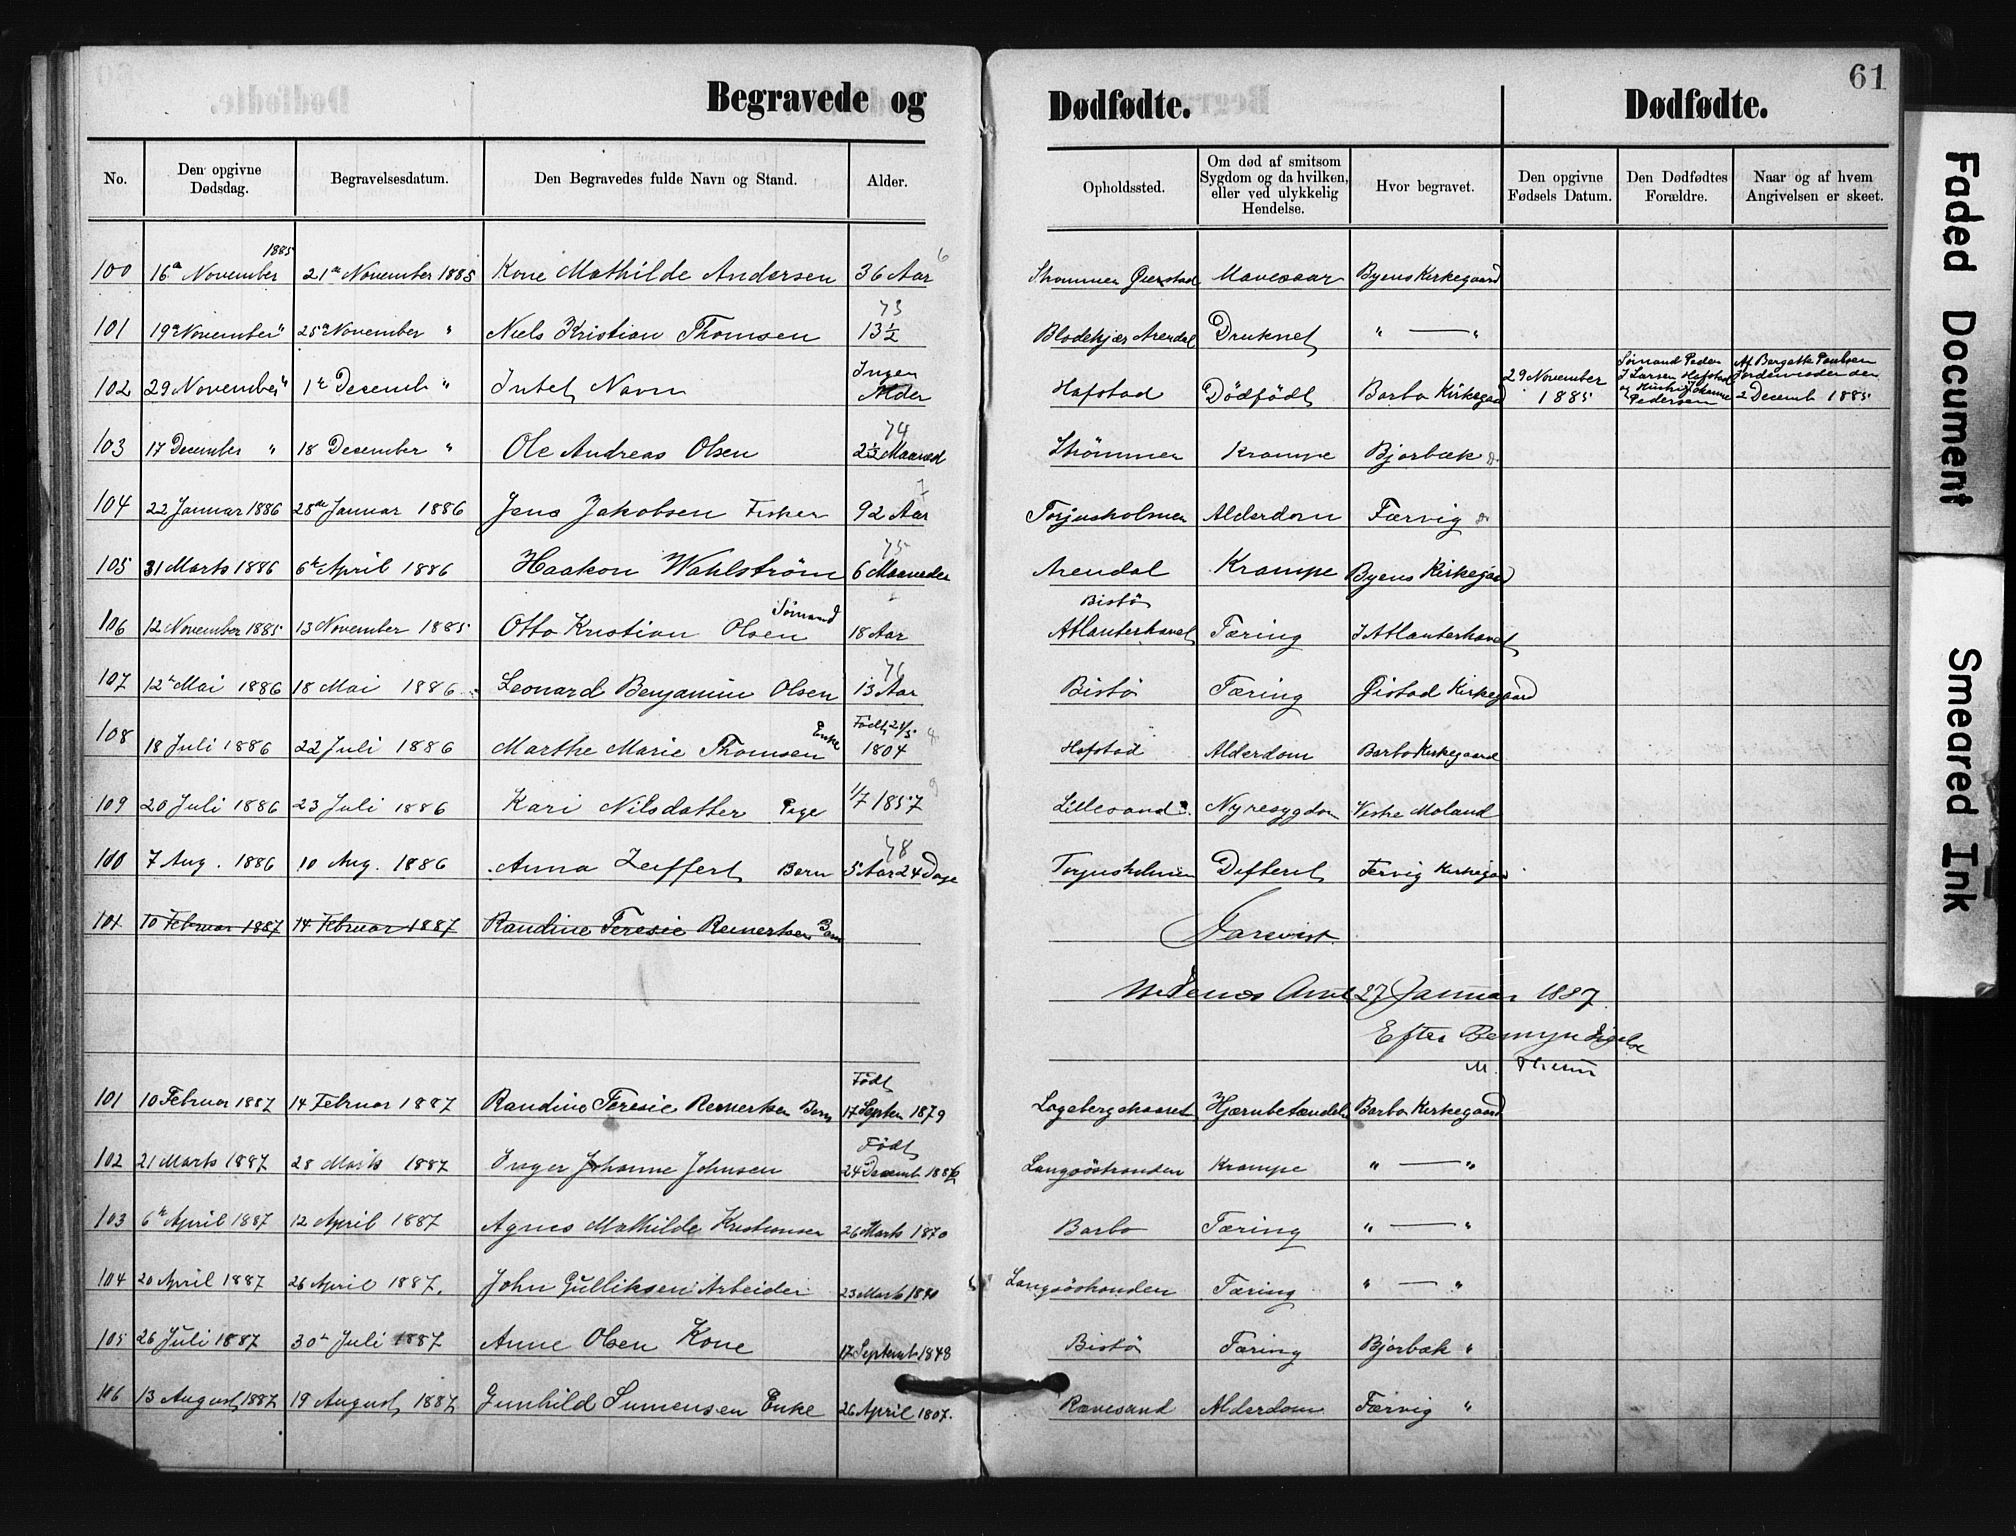 61
Begravede og Dødfødte. Dødfødte.
No. Den opgivne Dødsdag. Begravelsesdatum. Den Begravedes fulde Navn og Stand. Alder. Opholdssted. Om død af smitsom Sygdom og da hvilken, eller ved ulykkelig Hendelse. Hvor begravet. Den opgivne Fødsels Datum. Den Dødfødtes Forældre. Naar og af hvem Angivelsen er skeet.
1885
100 16de November 21de November 1885 Kone Mathilde Andersen 36 Aar Strømmen Øiestad Mavesaar Byens Kirkegaard
73
101 19de November " 25de November " Niels Kristian Thomsen 13½ Blodekjær Arendal Druknet " — "
102 29 November " 1te Decemb " Intet Navn Ingen Alder Hafstad Dödfödt Barbo Kirkegaard 29 November 1885 Sømand Peder J Larsen Hafstad og Hustru Johanne Pedersen Af Bergette Paulsen Jordemoder den 2 Decemb 1885
74
103 17 December " 18 Desember " Ole Andreas Olsen 2½ Maaned Strømmen Krampe Bjorbæk
104 22 Januar 1886 28de Januar 1886 Jens Jakobsen Fisker 92 Aar Torjusholmen Alderdom Færvig
75
105 31 Marts 1886 6te April 1886 Haakon Wahlstrøm 6 Maaneder Arendal Krampe Byens Kirkegaard
106 12 November 1885 13 November 1885 Otto Kristian Olsen Sömand 18 Aar Bistö Atlanterhavet Tæring I Atlanterhavet
76
107 12te Mai 1886 18 Mai 1886 Leonard Benjamin Olsen 13 Aar Bistö Tæring Øistad Kirkegaard
108 18 Juli 1886 22 Juli 1886 Marthe Marie Thomsen Enke Födt 24/5 1804 Hafstad Alderdom Barbo Kirkegaard
109 20 Juli 1886 23 Juli 1886 Kari Nilsdatter Pige 1/7 1857 Lillesand Nyresygdom Vestre Moland
78
100 7 Aug. 1886 10 Aug. 1886 Anna Zeiffert Barn 5 Aar 24 Dage Torjusholmen Difterit Fervig Kirkegaard
101 10 Februar 1887 14 Februar 1887 Randine Teresie Reinertsen Barn
Forevist.
Nedenes Amt 27 Januar 1887.
Efter Bemyndigelse
M.
101 10 Februar 1887 14 Februar 1887 Randine Teresie Reinertsen Barn Födt 17 Septem 1879 Longebergskaaret Hjærnbetændelse Barbo Kirkegaard
102 21 Marts 1887 28 Marts 1887 Inger Johanne Johnsen Födt 24 Decemb 1886 Langsöstranden Krampe " — "
103 6te April 1887 12 April 1887 Agnes Mathilde Kristiansen 26 Marts 1870 Barbo Tæring " — "
104 20 April 1887 26 April 1887. John Gulliksen Arbeider 23 Marts 1840 Langsöstranden Tæring " — "
105 26 Juli 1887 30te Juli 1887 Anne Olsen Kone 17 Septemb 1848 Bistö Tæring Bjorbæk "
106 13 August 1887 19 August 1887 Gunhild Simensen Enke 26 April 1807. Rævesand Alderdom Færvig "
Faded Document
Smeared Ink